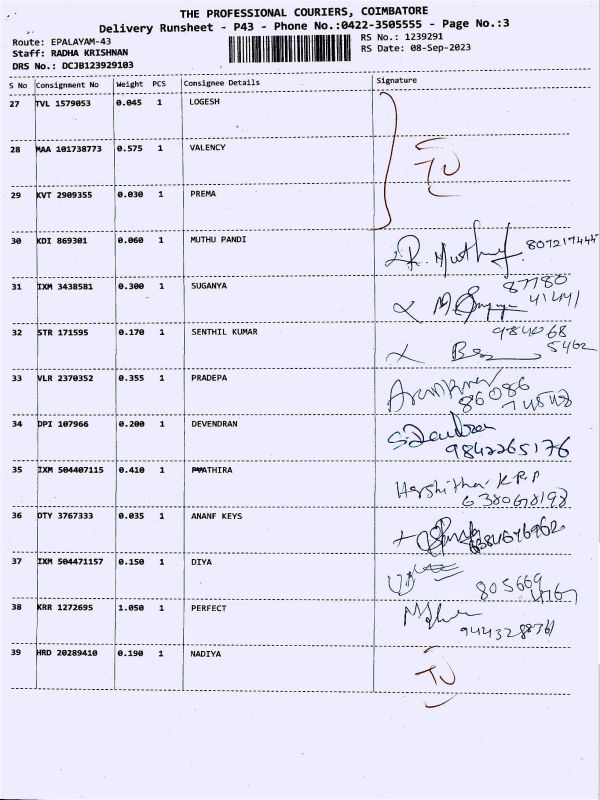 THE PROFESSIONAL COURIERS, COIMBATORE
Delivery Runsheet - P43 - Phone No.:0422-3505555 - Page No.:3
Route: EPALAYAM-43
RS No.: 1239291
Staff: RADHA KRISHNAN
RS Date: 08-Sep-2023
DRS No.: DCJB123929103
S No Consignment No Weight PCS Consignee Details Signature
27 TVL 1579053 0.045 1 LOGESH
28 MAA 101738773 0.575 1 VALENCY
29 KVT 2909355 0.030 1 PREMA
30 KDI 869301 0.060 1 MUTHU PANDI
31 IXM 3438581 0.300 1 SUGANYA 87780
41441
32 STR 171595 0.170 1 SENTHIL KUMAR
5462
33 VLR 2370352 0.355 1 PRADEPA Arunkumar
86086
74548
34 DPI 107966 0.200 1 DEVENDRAN S. Devendran
9842265176
35 IXM 504407115 0.410 1 ATHIRA Harshitha K.R.P
36 DTY 3767333 0.035 1 ANANF KEYS
37 IXM 504471157 0.150 1 DIYA 805669
38 KRR 1272695 1.050 1 PERFECT
39 HRD 20289410 0.190 1 NADIYA